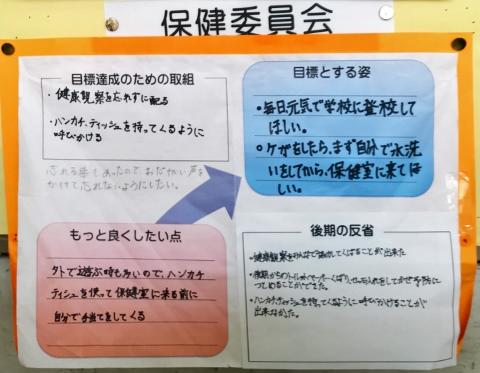 保健委員会
目標達成のための取組
・健康観察を忘れずに配る
・ハンカチ、ティッシュを持ってくるように
呼びかける
忘れる事もあったので、おだやかい声を
かけて忘れないようにしたい。
目標とする姿
・毎日元気で学校に登校して
ほしい。
・ケガをしたら、まず自分で水洗
いをしてから、保健室に来てほ
しい。
もっと良くしたい点
外で遊ぶ時も多いので、ハンカチ
ティシュを使って保健室に来る前に
自分で手当てをしてくる
後期の反省
・健康観察をみんなで協力してくばることが出来た
・後期からのトイレットペーパーくばり、せっけん入れをしてかぜ予防に
つとめることができた。
・ハンカチ、ティッシュを持ってくるように呼びかけることが
出来なかった。